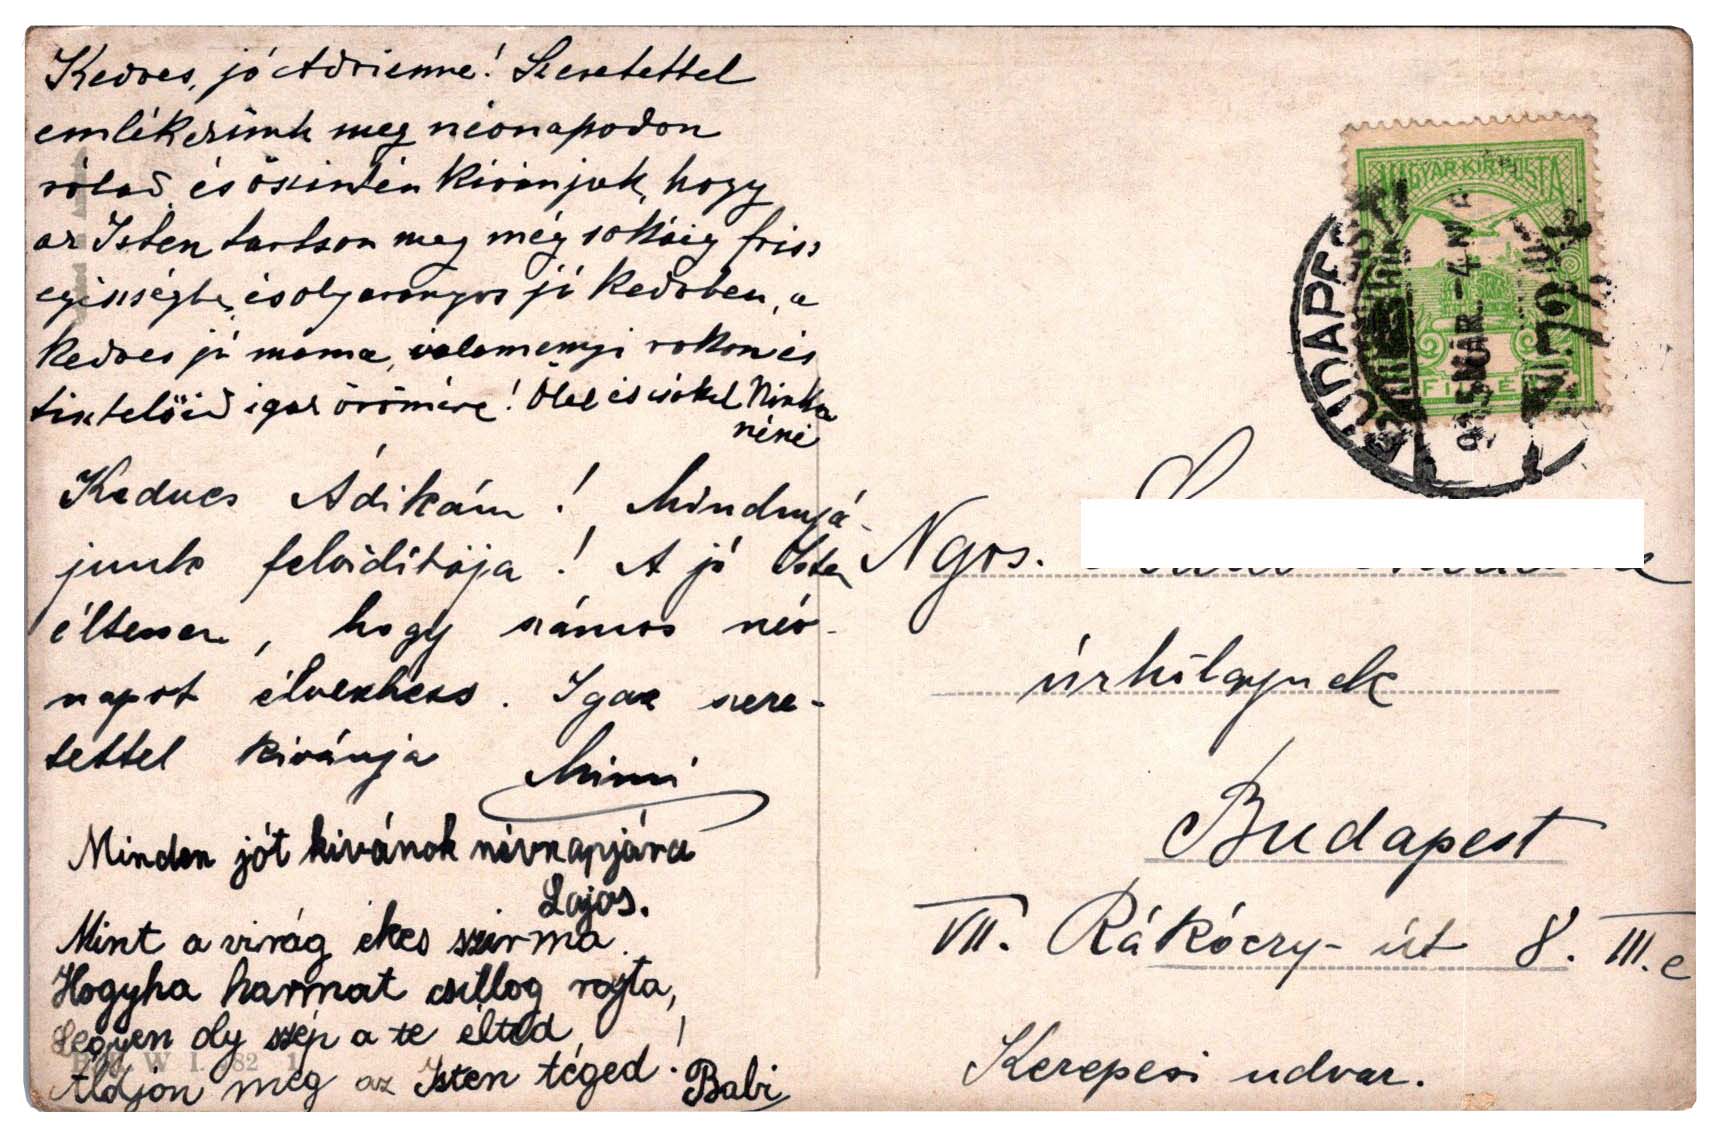 Kedves, jó Adrienne! Szeretettel
emlékezünk meg névnapodon
rólad, és őszintén kivánjuk, hogy
az Isten tartson meg még sokáig friss
egészségbe, és olyan aranyos jó kedvben, a
kedves jó mama, valamenyi rokon és
tisztelőid igaz örömére! Ölel és csókol Ninka
néni
Kedves Ádikám! Mindnyá-
junk felvidítója! A jó Isten
éltessen, hogy számos név-
napot élvezhess. Igaz szere-
tettel kivánja Mimi
Minden jót kivánok névnapjára
Lajos.
Mint a virág ékes szirma
Hogyha harmat csillog rajta,
Legyen oly szép a te élted,
Áldjon meg az Isten téged! Babi
B.K.W.I. 182 1
MAGYAR KIR. POSTA
FILLÉR
BUDAPEST
915 MÁR. -4 N
Ngos.
úrhölgynek
Budapest
VII. Rákóczy-út 8. III. e
Kerepesi udvar.